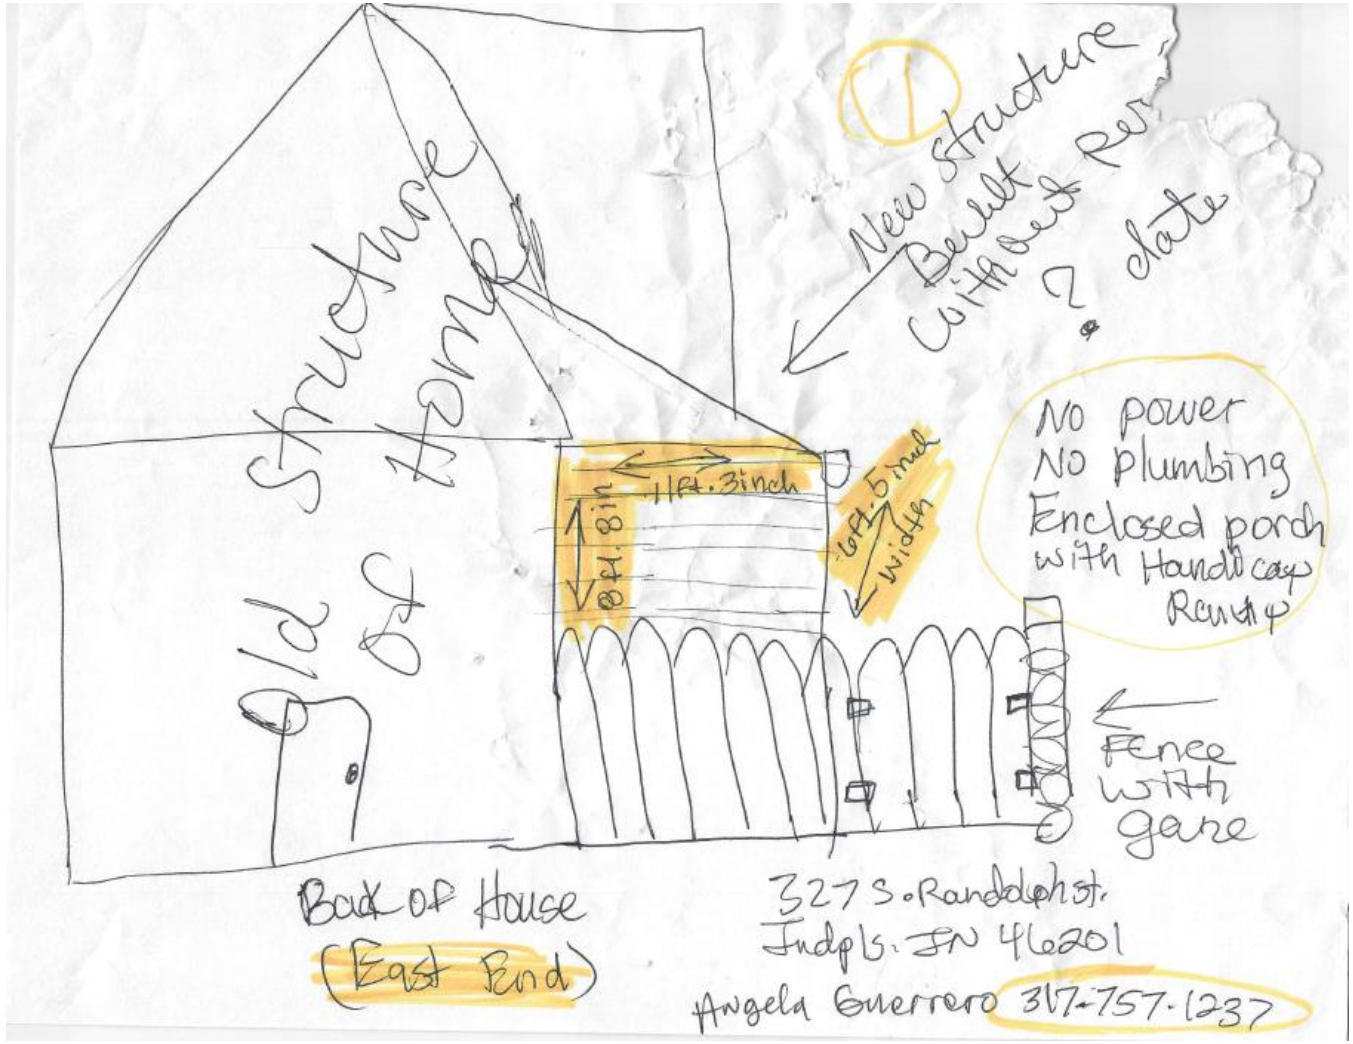 1
New Structure
Built
without Per
? date
Old Structure
of Home
11ft. 3inch
8ft. 8in
6ft. 5 inch
width
No power
No plumbing
Enclosed porch
with Handicap
Ramp
Fence
with
gane
Back of House
(East End)
327 S. Randolph st.
Indpls. IN 46201
Angela Guerrero 317-757-1237